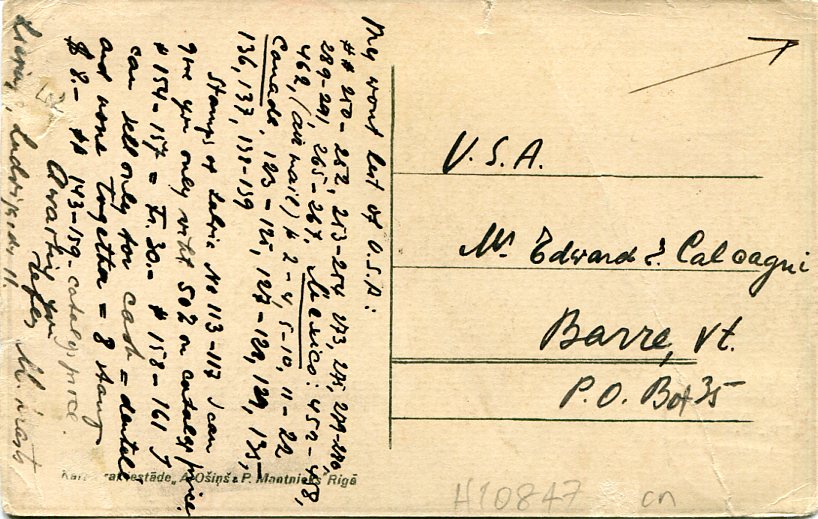 My want list of U.S.A:
## 250-252, 253-254 273, 275, 279-280
289-291, 265-267, Mexico: 452-458,
462, (air mail) # 2-4, 5-10, 11-22
Canada, 123-125, 127-128, 129, 135,
136, 137, 138-139
Stamps of Latvia No 113-117 I can
give you only with 50% on catalog price.
# 154-157 = Fr. 30.- # 158-161 I
can sell only for cash =
and none together = 8 stamps
$ 8.- ## 143-159 catalog price.
Awaiting your
Ludzas 11.
"A. Ošiņš & P. Mantnieks" Rīgā
U.S.A.
Mr. Edward Calcagni
Barre, Vt.
P.O. Box 35
H10847 cn